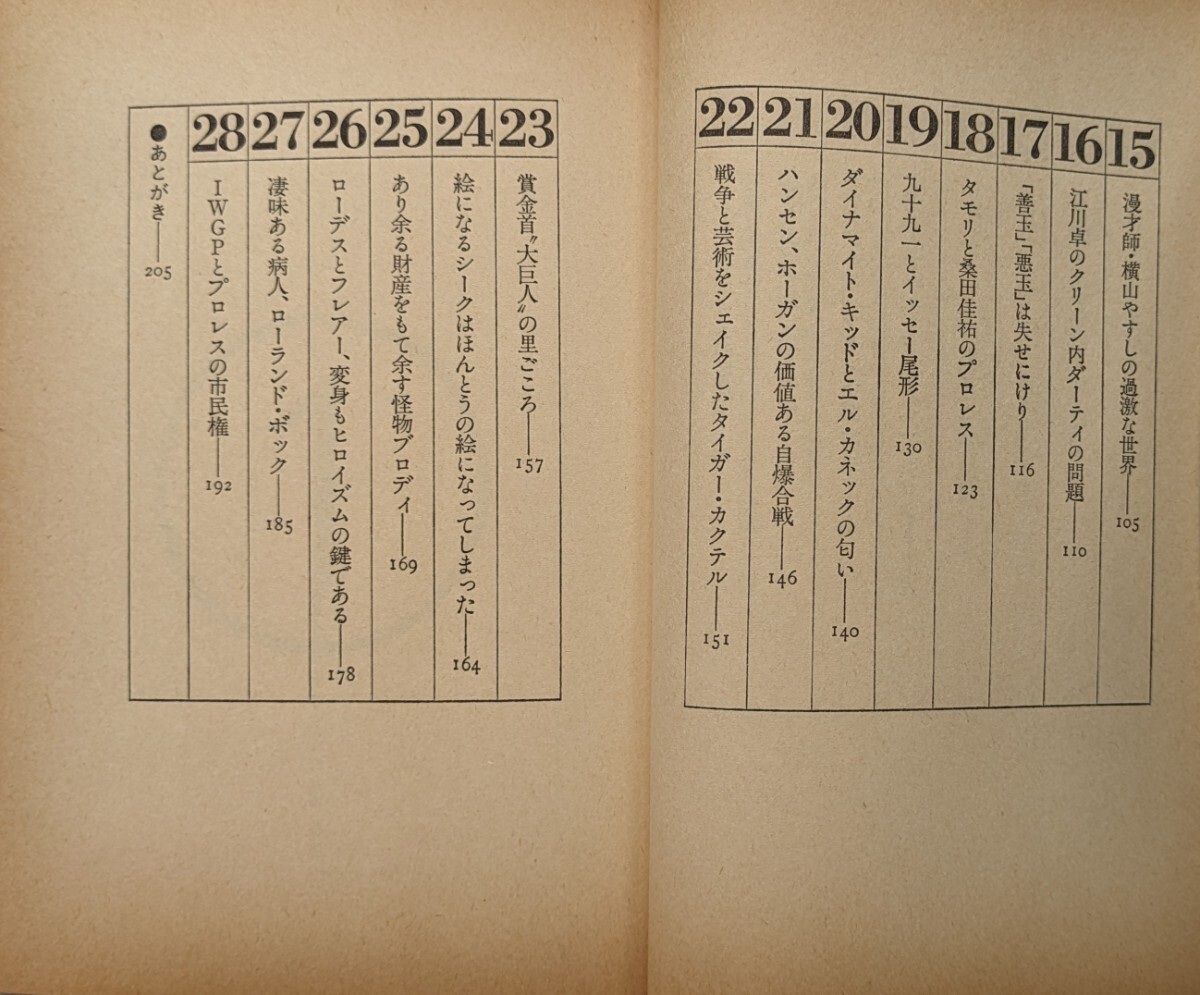 15
漫才師・横山やすしの過激な世界――105
16
江川卓のクリーン内ダーティの問題――110
17
「善玉」「悪玉」は失せにけり――116
18
タモリと桑田佳祐のプロレス――123
19
九十九一とイッセー尾形――130
20
ダイナマイト・キッドとエル・カネックの匂い――140
21
ハンセン、ホーガンの価値ある自爆合戦――146
22
戦争と芸術をシェイクしたタイガー・カクテル――151
23
賞金首〝大巨人〟の里ごころ――157
24
絵になるシークはほんとうの絵になってしまった――164
25
あり余る財産をもて余す怪物ブロディ――169
26
ローデスとフレアー、変身もヒロイズムの鍵である――178
27
凄味ある病人、ローランド・ボック――185
28
IWGPとプロレスの市民権――192
●あとがき――205